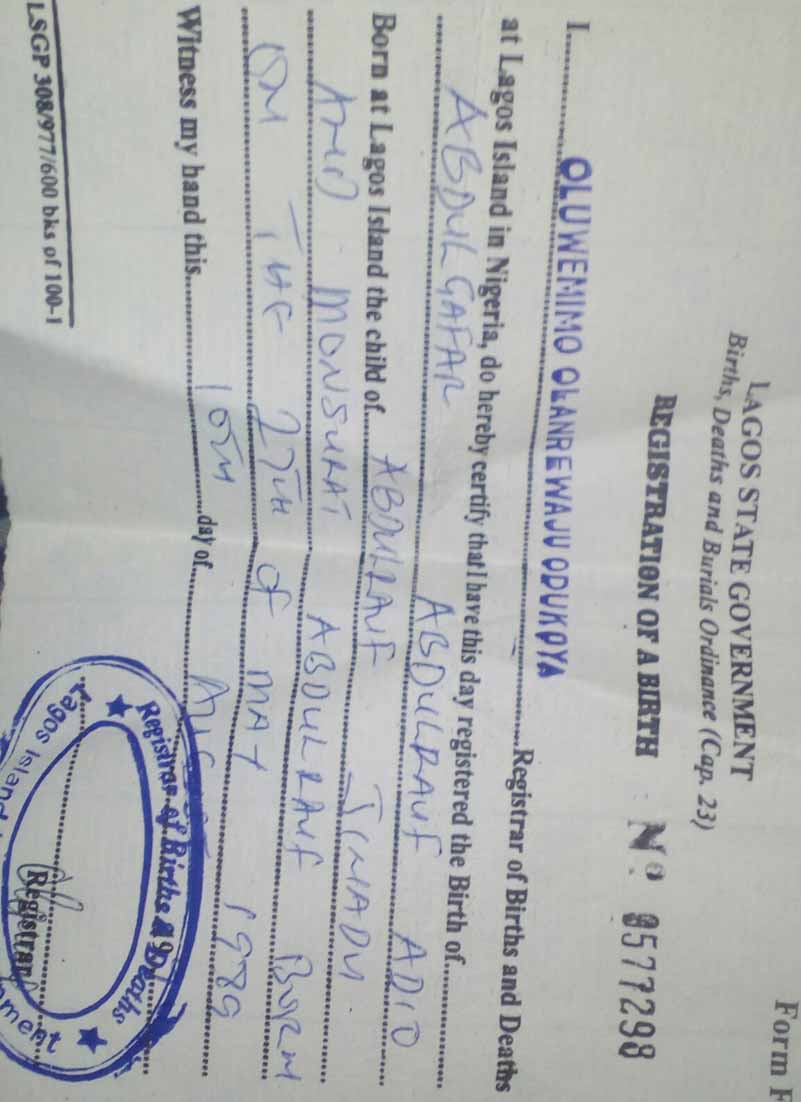 Form F
LAGOS STATE GOVERNMENT
Births, Deaths and Burials Ordinance (Cap. 23)
REGISTRATION OF A BIRTH Nº 0577298
I OLUWEMIMO OLANREWAJU ODUKOYA Registrar of Births and Deaths
at Lagos Island in Nigeria, do hereby certify that I have this day registered the Birth of
ABDULGAFAR ABDULRAUF ADIO
Born at Lagos Island the child of ABDULRAUF JIMADU
AND MONSURAT ABDULRAUF BORN
ON THE 27TH Of MAY 1989
Witness my hand this 10TH day of AUGUST
Registrar of Births & Deaths
Lagos Island
Registrar
LSGP 308/977/600 bks of 100-1